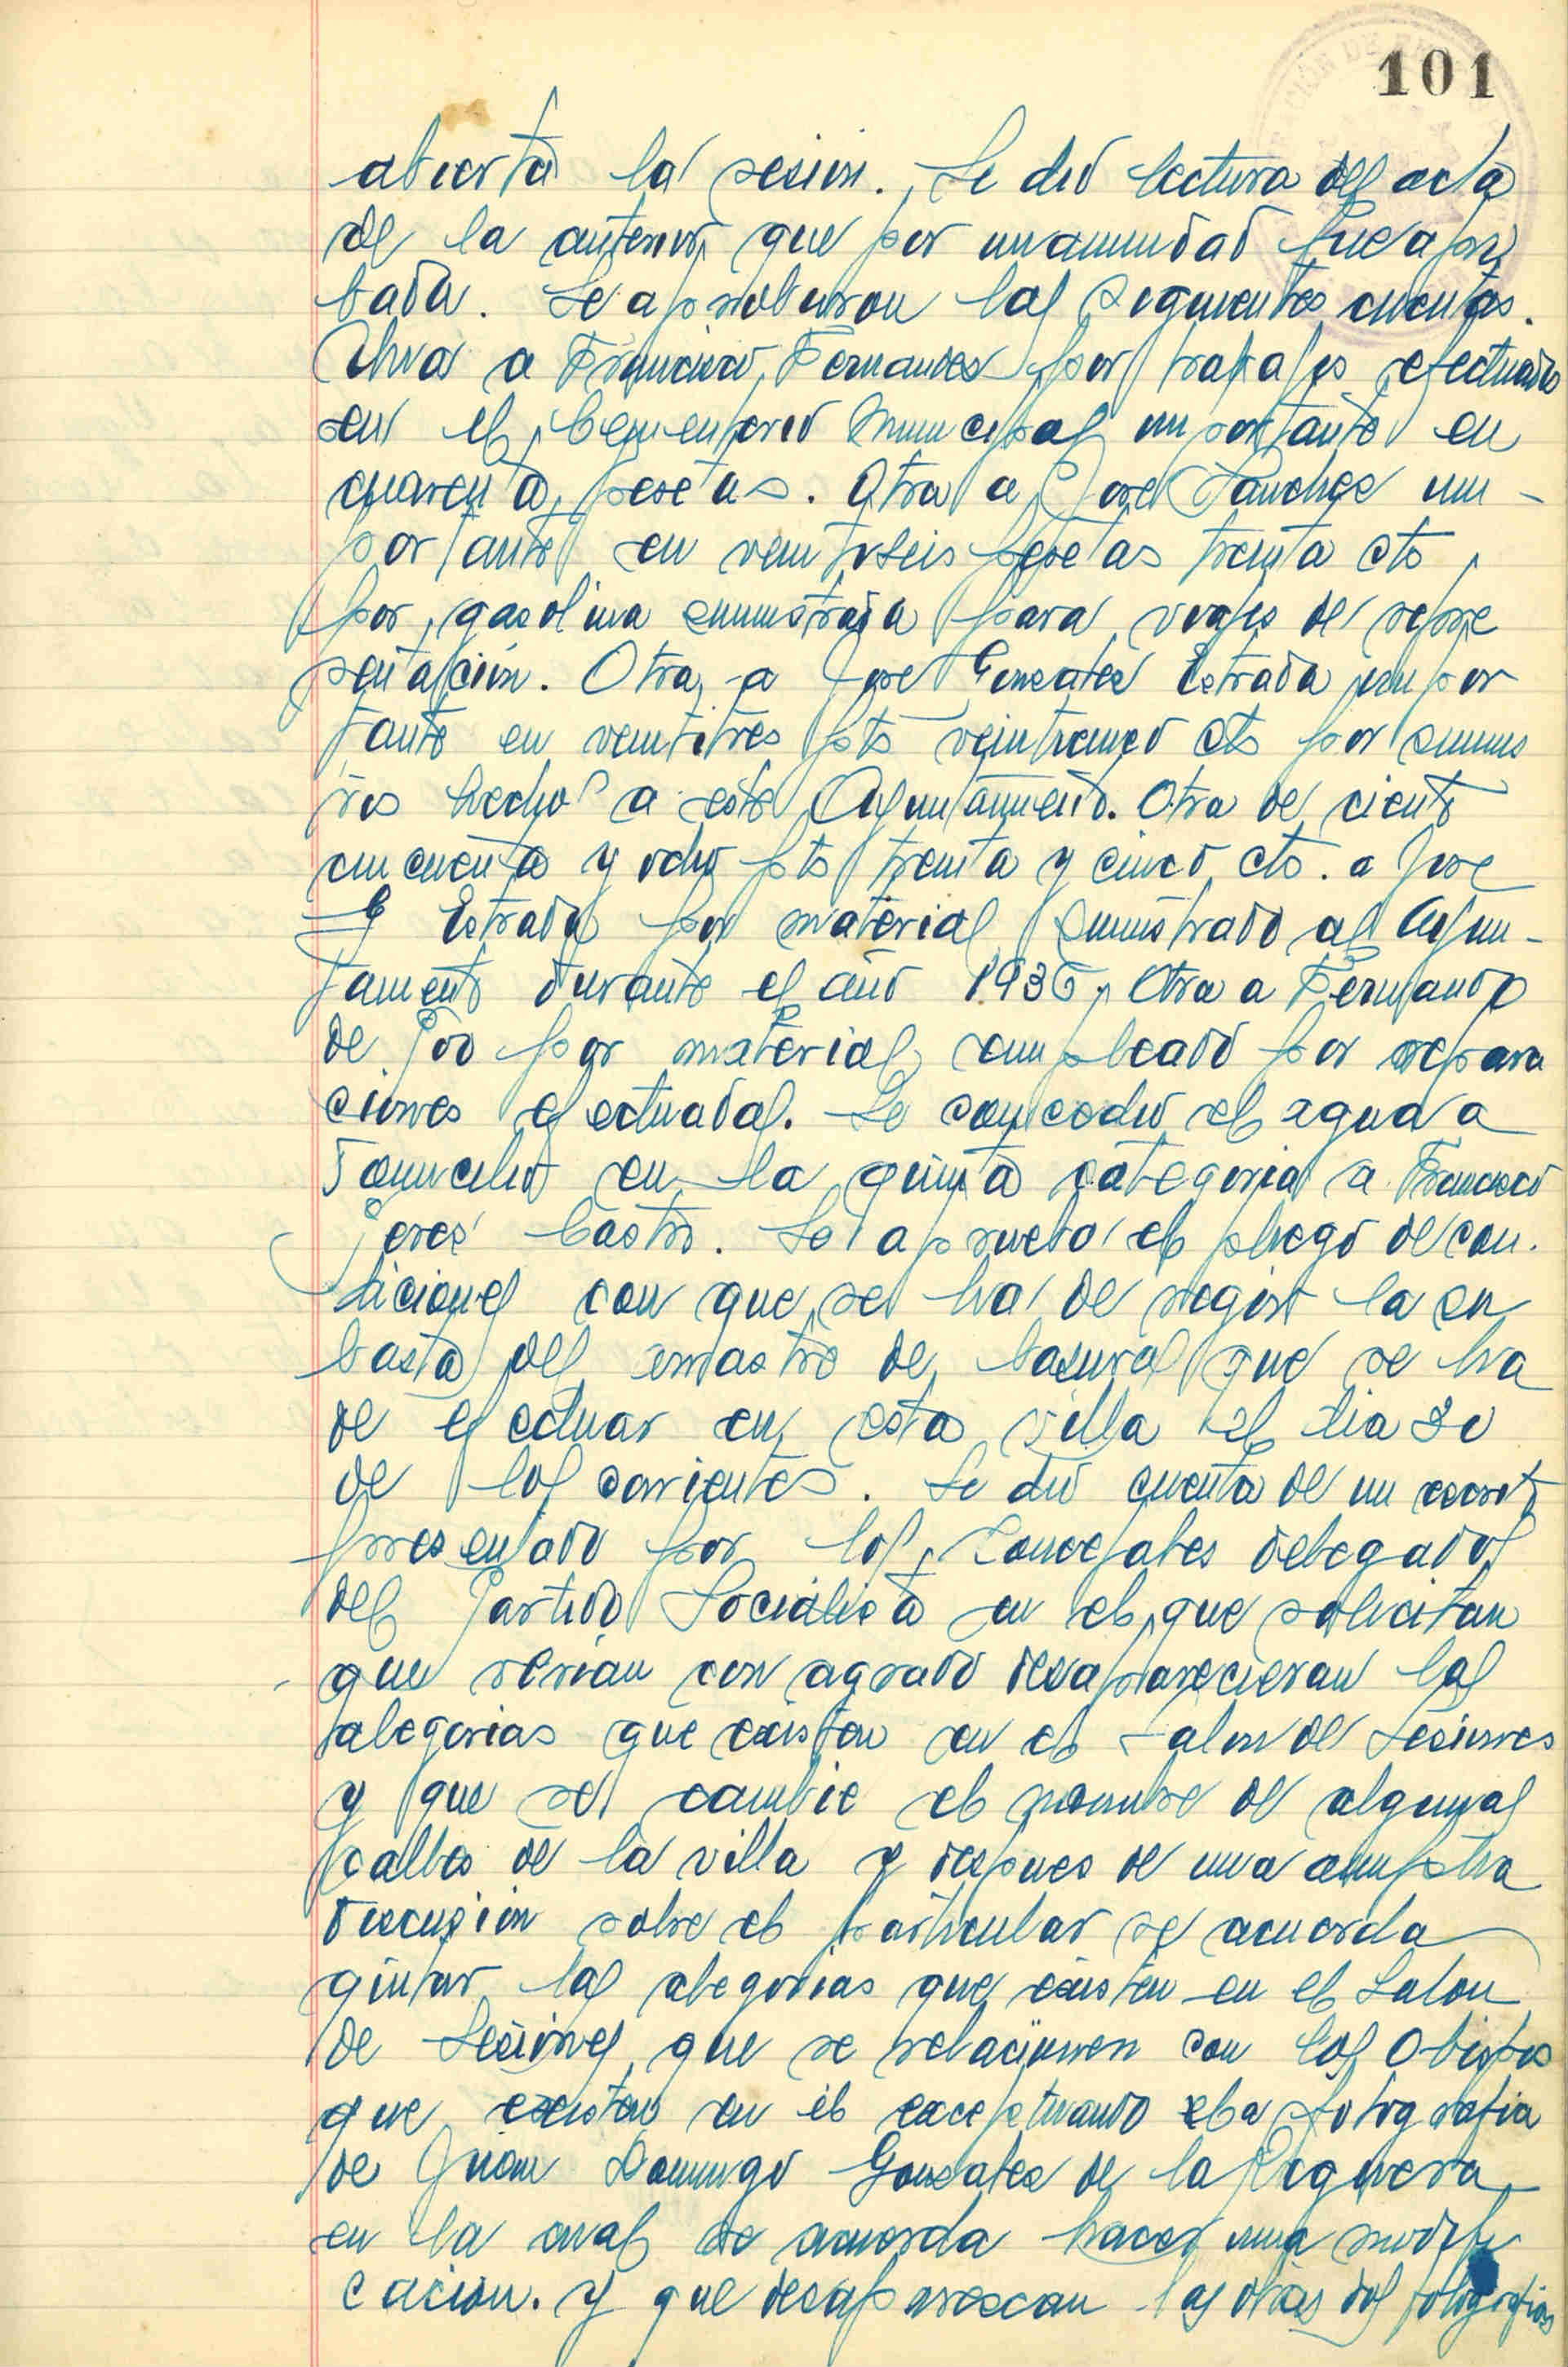 101
abierta la sesion. Se dió lectura del acta
de la anterior, que por unanimidad fue apro
bada. Se aprobaron las siguientes cuentas.
a Francisco Fernandez por trabajos efectuados
en el Cementerio Municipal importante en
cuarenta pesetas. Otra a Jose Sanchez im-
portante en veintiseis pesetas treinta cts
por gasolina suministrada para viajes de repre
sentación. Otra a Jose Gonzalez Estrada impor
tante en veintitres pts veinticinco cts por suminis
tros hechos a este Ayuntamiento. Otra de ciento
cincuenta y ocho pts treinta y cinco cts. a Jose
G Estrada por material suministrado al Ayun-
tamiento durante el año 1936, Otra a Fernando
de Poo por material empleado por repara
ciones efectuadas. Se concedio el agua a
domicilio en la quinta categoria a Francisco
Perez Castro. Se aprueba el pliego de con-
diciones con que se ha de regir la su
basta del arrastre de basuras que se ha
de efectuar en esta villa el dia 20
de los corrientes. Se dió cuenta de un escrito
presentado por los Concejales delegados
del Partido Socialista en el que solicitan
que verian con agrado desaparecieran las
alegorias que existen en el salon de Sesiones
y que se cambie el nombre de algunas
calles de la villa y despues de una amplia
discusión sobre el particular se acuerda
quitar las alegorias que existen en el Salon
de Sesiones que se relacionen con los Obispos
que existen en el exceptuando la fotografia
de Juan Domingo Gonzalez de la Reguera
en la cual se acuerda hacer una modifi
cacion. Y que desaparezcan las otras dos fotografias